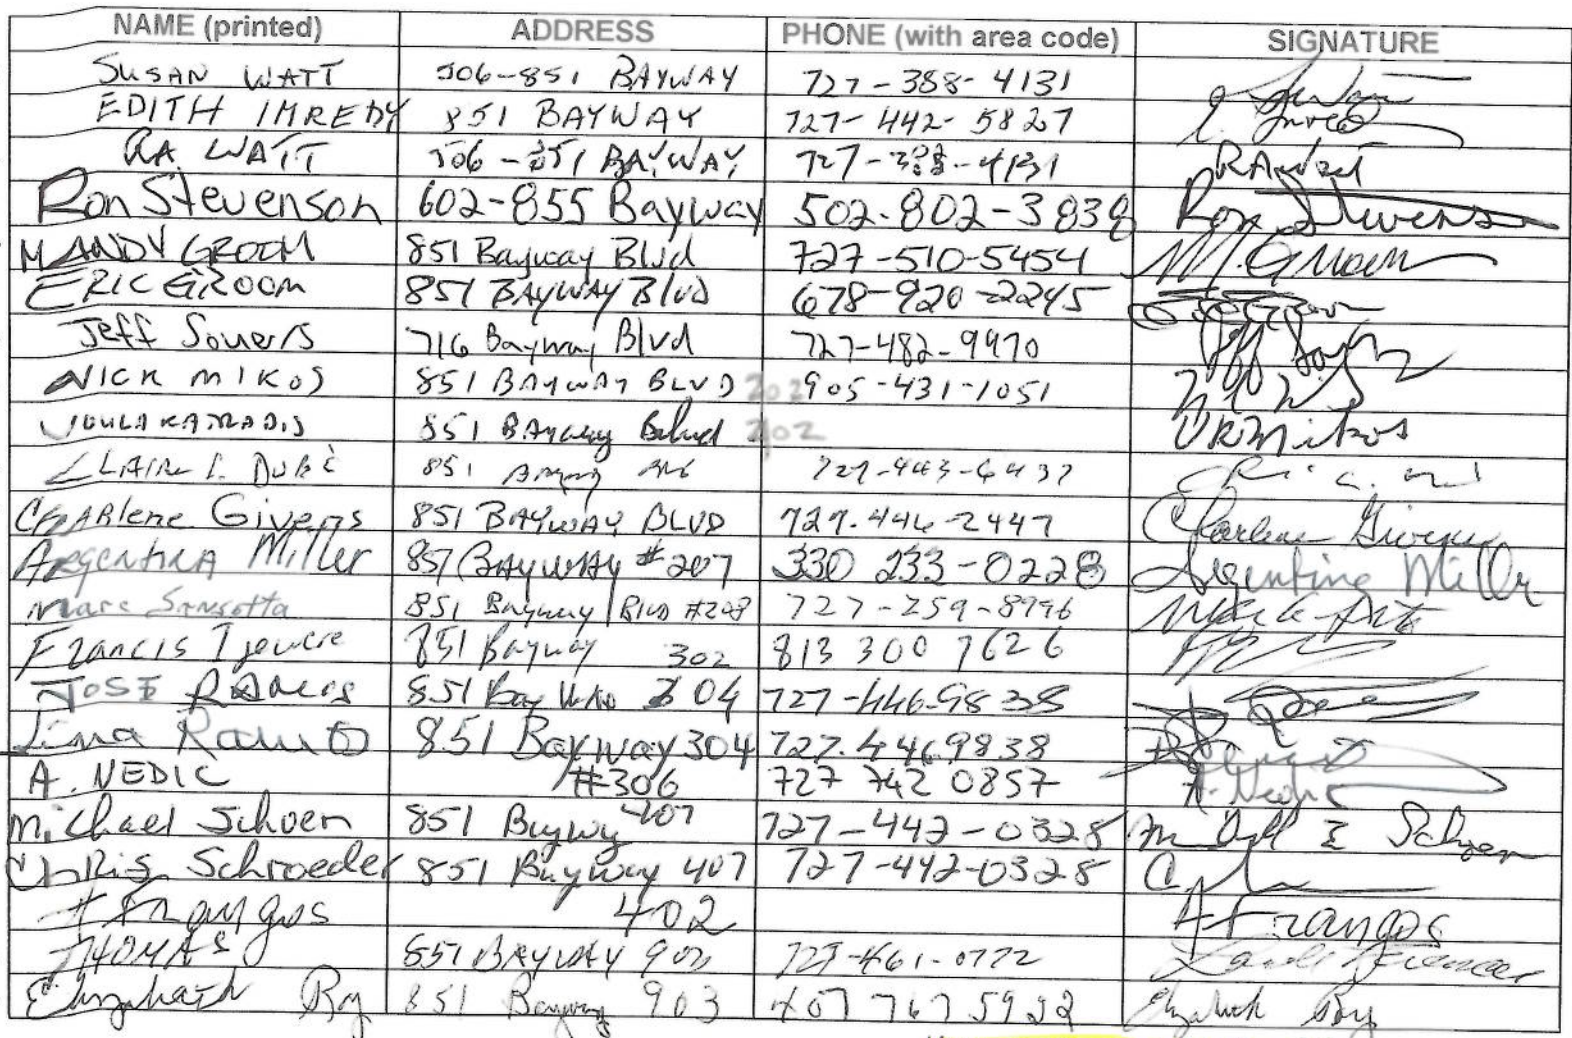 NAME (printed) ADDRESS PHONE (with area code) SIGNATURE
SUSAN WATT 506-851 BAYWAY 727-388-4131
EDITH IMREDY 851 BAYWAY 727-442-5827
RA WATT 506-851 BAYWAY 727-388-4131 RA Watt
Ron Stevenson 602-855 Bayway 502-802-3838 Ron Stevenson
MANDY GROOM 851 Bayway Blvd 727-510-5454 M. Groom
ERIC GROOM 851 BAYWAY Blvd 678-920-2245
Jeff Souers 716 Bayway Blvd 727-482-9970
NICK MIKOS 851 BAYWAY BLVD 202 905-431-1051
851 BAyway 202 VKMikos
CLAIRE L. DUBÉ 851 727-443-6437
CHARlene Givens 851 BAYWAY BLVD 727.446-2447 Charlene Givens
ARgentinA Miller 851 BAYWAY #207 330 233-0228 Argentina Miller
Marc Sansotta 851 Bayway Blvd #208 727-259-8996
Francis 851 Bayway 302 813 300 7626
JOSE 851 304 727-446-9838
851 Bayway 304 727.446.9838
A. NEDIC #306 727 742 0857 A. Nedic
Michael Schoen 851 Baywy 407 727-442-0328
Chris Schroeder 851 Bayway 407 727-442-0328
Frangos 402 A Frangos
THOMAS 851 BAYWAY 902 727-461-0772
Elizabeth Roy 851 Bayway 903 407 767 5922 Elizabeth Roy